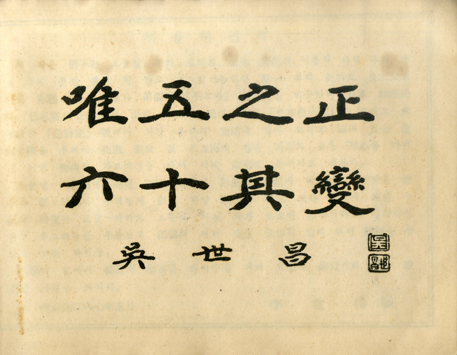 唯五之正
六十其變
吳世昌